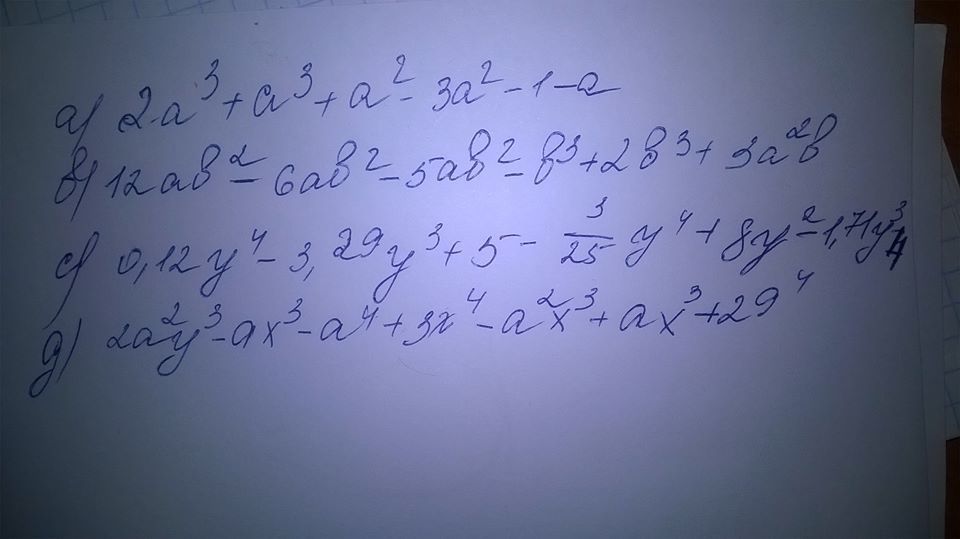 а) 2a³ + a³ + a² - 3a² - 1 - a
в) 12ab² - 6ab² - 5ab² - b³ + 2b³ + 3a²b
с) 0,12y⁴ - 3,29y³ + 5 - 3/25 y⁴ + 8y² - 1,71y³
д) 2a²y³ - ax³ - a⁴ + 3x⁴ - a²x³ + ax³ + 29⁴